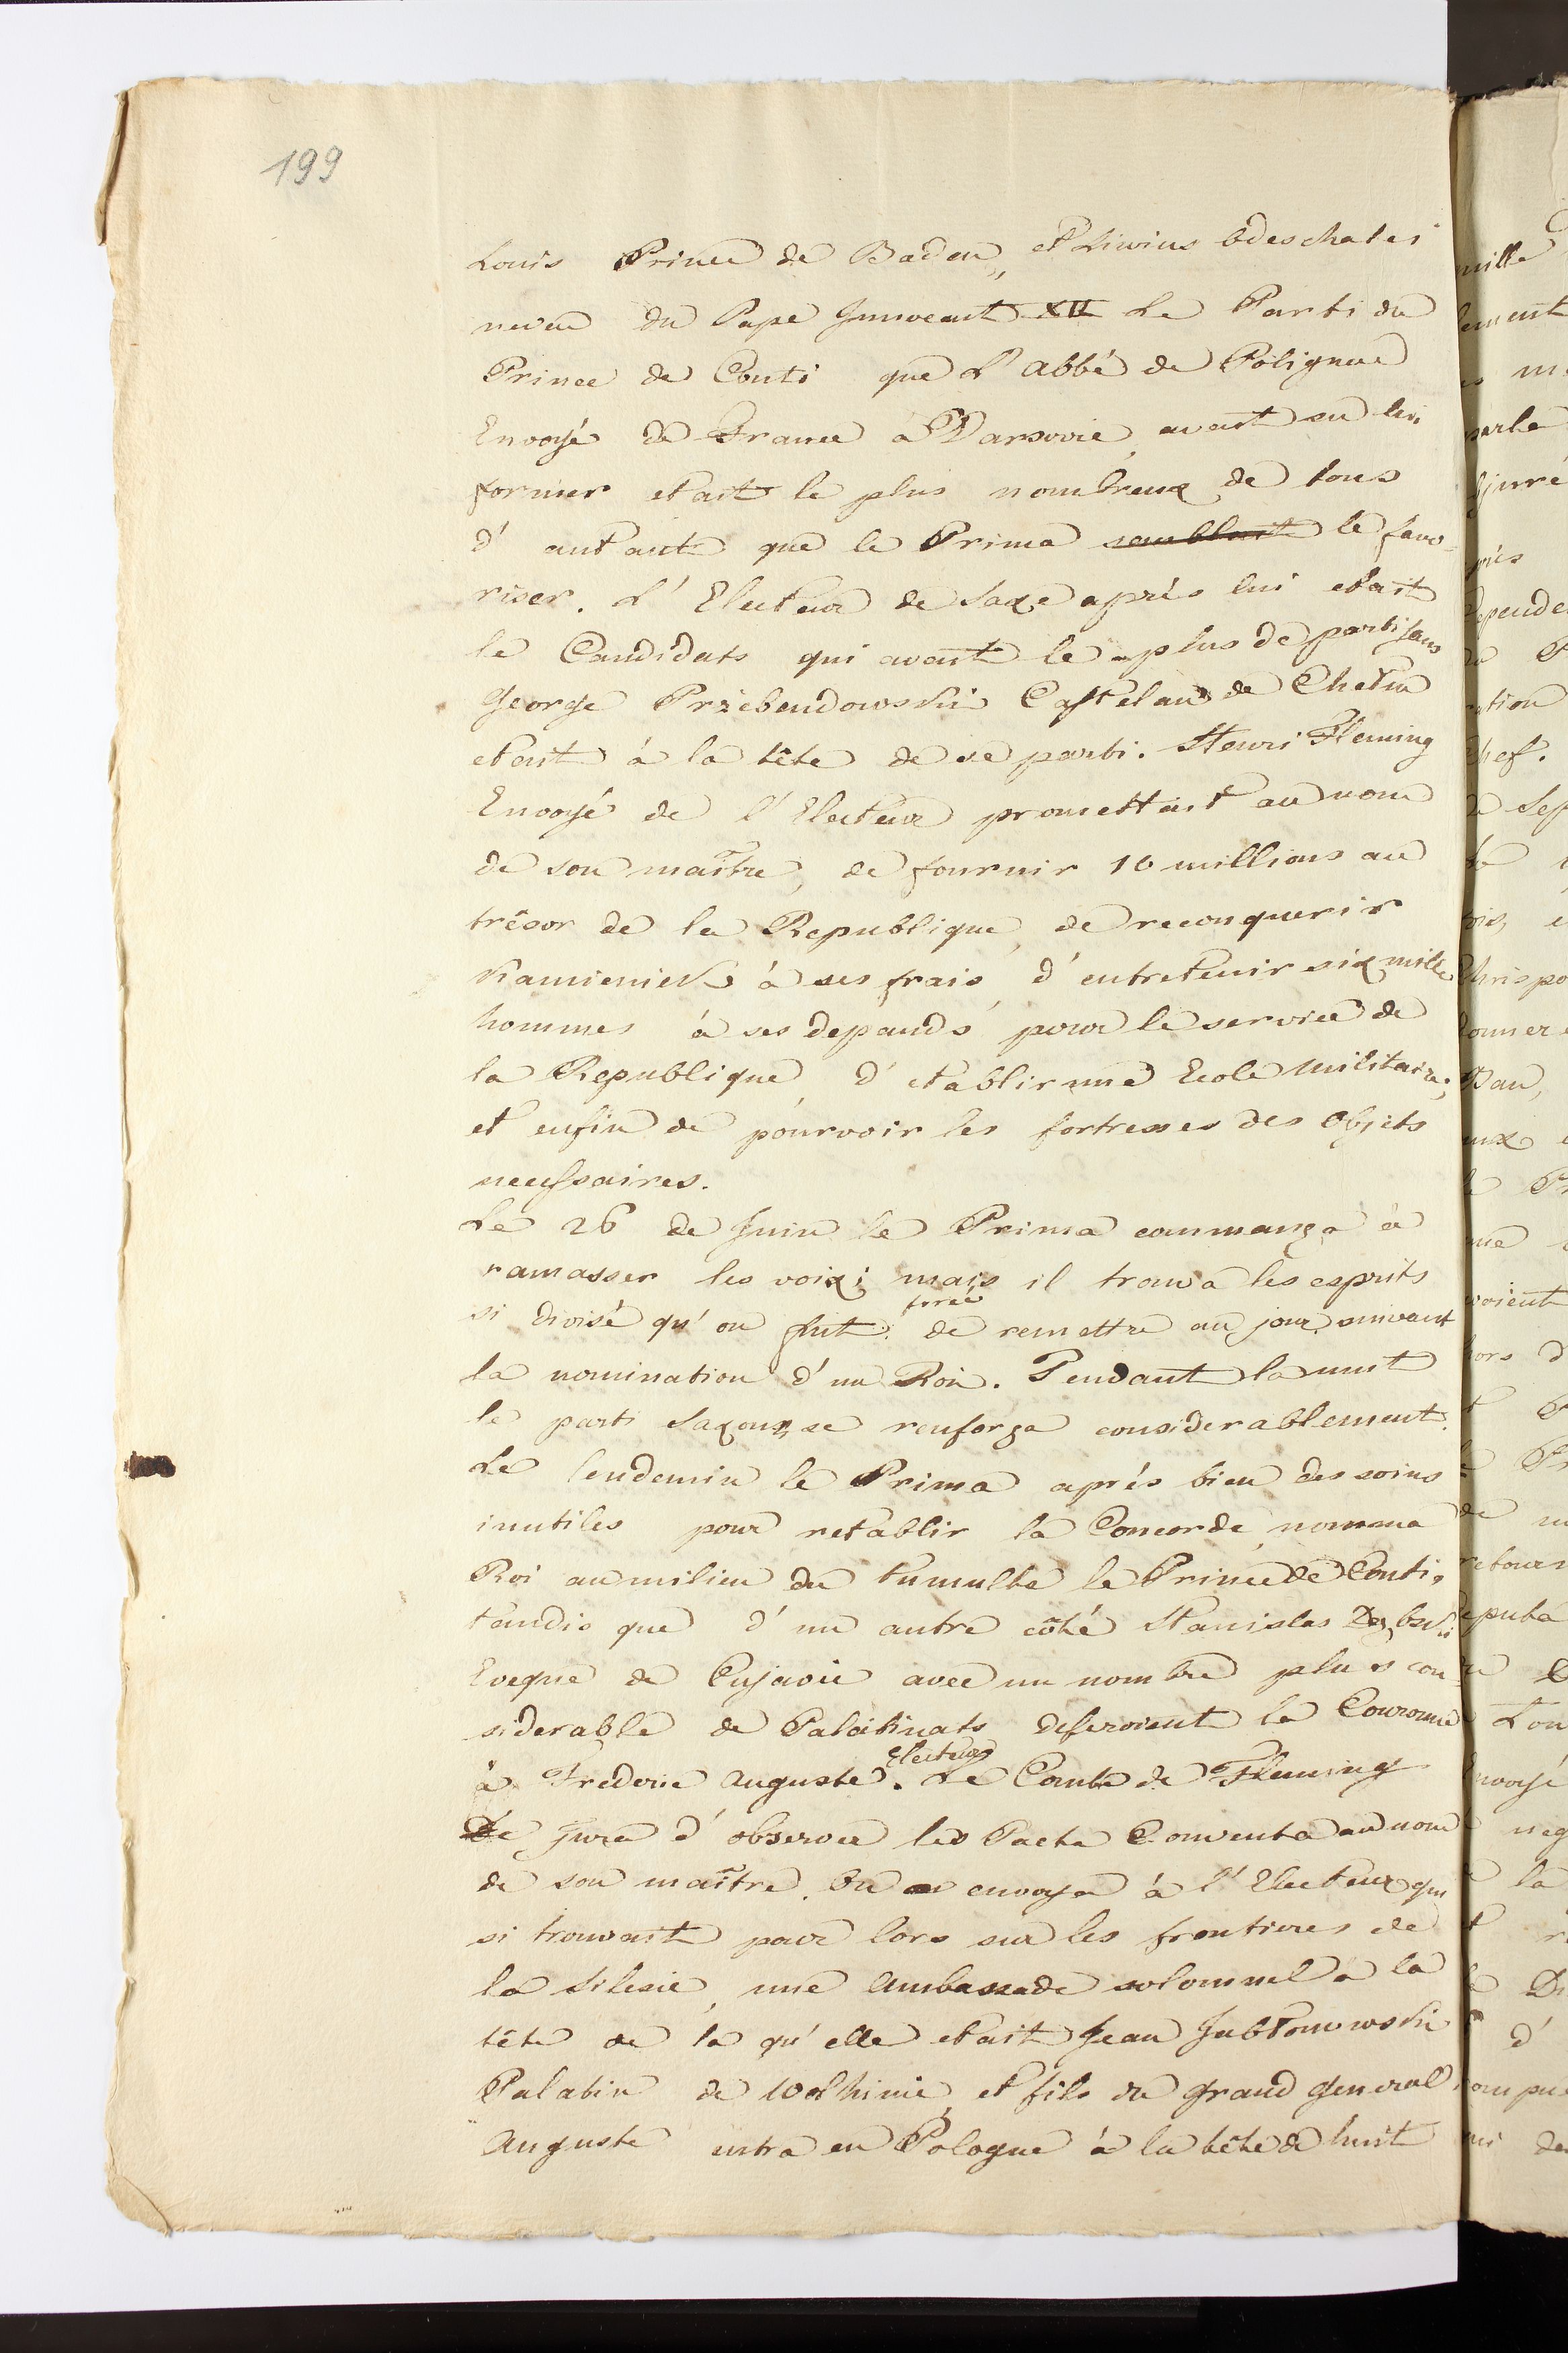 199
Louis Prince de Baden, et Liwius Odeschalei
neveu du Pape Innoceant XII Le Parti du
Prince de Conti que L'abbé de Polignac
Envoyé de France à Varsovie, avait su lui
former etait le plus nombreux de tous
d'autant que le Prima semblait le favo-
riser. L'Electeur de Saxe après lui etait
le Candidats qui avait le plus de partisans
George Przebendowski Castelan de Chełm
etait à la tête de ce parti. Henri Fleming
Envoyé de l'Electeur promettait au nom
de son maître, de fournir 10 millions au
trêsor de la Republique, de reconquerir
Kamieniek à ses frais, d'entretenir six mille
hommes à ses depands pour le service de
la Republique, d'etablir une Ecole militaire;
et enfin de pourvoir les fortresses des objets
necessaires.
Le 26 de Juin le Prima commança à
ramasser les voix; mais il trouva les esprits
si divisé qu'on fut forcé de remettre au jour suivant
la nomination d'un Roi. Pendant la nuit
le parti Saxons, se renforça considerablement.
Le lendemin le Prima après bien des soins
inutiles pour retablir la Concorde, nomma
Roi au milieu du tumulte le Prince de Conti,
tandis que d'un autre côté Stanislas Dąbski
Eveque de Cujavie avec un nombre plus con-
siderable de Palatinats deferoient la Couronne
à Frederic Auguste Electeur. Le Comte de Fleming
De jura d'observer les Pacta Conventa au nom
de son maître. On envoya à l'Electeur qui
si trouvait pour lors sur les frontieres de
la Silesie, une Ambassade solomnel à la
tête de la qu'elle etait Jean Jabłonowski
Palatin de Wolhinie et fils du grand General
Auguste entra en Pologne à la tête de huit